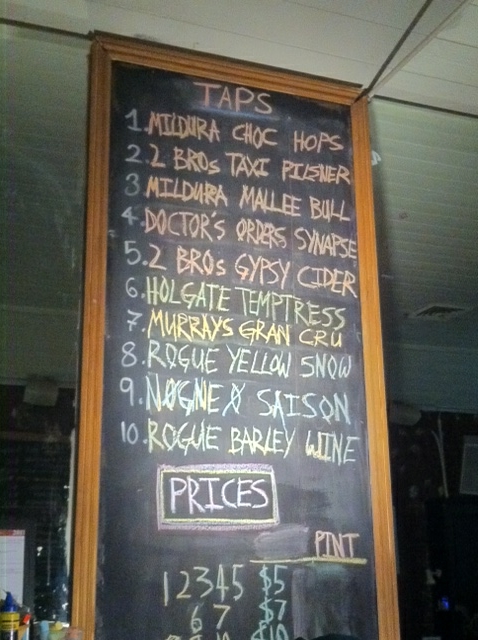 TAPS
1. MILDURA CHOC HOPS
2. 2 BROs TAXI PILSNER
3. MILDURA MALLEE BULL
4. DOCTOR'S ORDERS SYNAPSE
5. 2 BROs GYPSY CIDER
6. HOLGATE TEMPTRESS
7. MURRAYS GRAN CRU
8. ROGUE YELLOW SNOW
9. NØGNE Ø SAISON
10. ROGUE BARLEY WINE
PRICES
PINT
1 2 3 4 5 $5
6 7 $7
$10